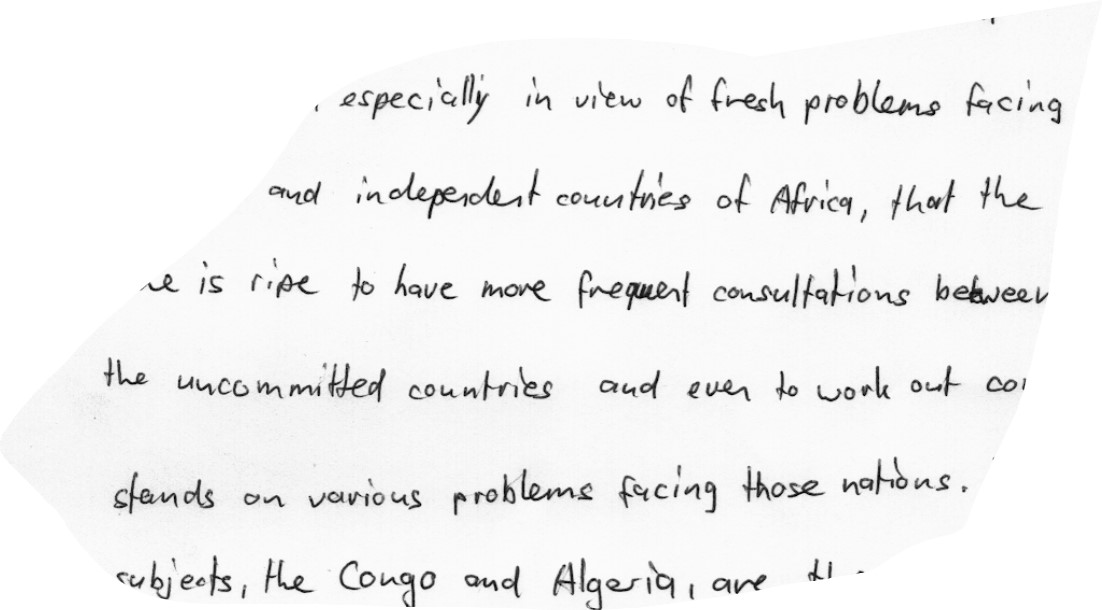 , especially in view of fresh problems facing
and independent countries of Africa, that the
is ripe to have more frequent consultations between
the uncommitted countries and even to work out
stands on various problems facing those nations.
subjects, the Congo and Algeria, are